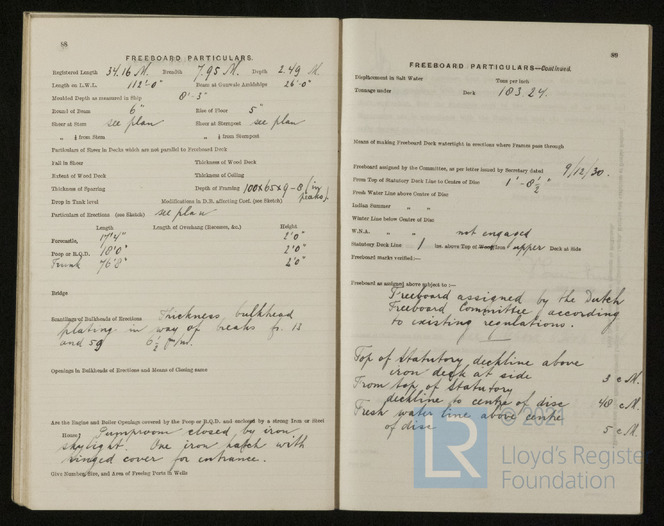 88
FREEBOARD PARTICULARS.
Registered Length 34.16 M. Breadth 7.95 M. Depth 2.49 M.
Length on L.W.L. 112'-0" Beam at Gunwale Amidships 26'-0"
Moulded Depth as measured in Ship 8'-3"
Round of Beam 6" Rise of Floor 5"
Sheer at Stem see plan Sheer at Sternpost see plan
„ ⅛ from Stem „ ⅛ from Sternpost
Particulars of Sheer in Decks which are not parallel to Freeboard Deck
Fall in Sheer Thickness of Wood Deck
Extent of Wood Deck Thickness of Ceiling
Thickness of Sparring Depth of Framing 100x65x9-8 (in peaks).
Drop in Tank level Modifications in D.B. affecting Coef. (see Sketch)
Particulars of Erections (see Sketch) see plan
Length Length of Overhang (Recesses, &c.) Height
Forecastle, 17'4" 2'0"
Poop or R.Q.D. 18'0" 2'0"
Trunk 76'8" 2'0"
Bridge
Scantlings of Bulkheads of Erections Thickness, bulkhead
plating in way of breaks fr. 13
and 59 6½ m/m.
Openings in Bulkheads of Erections and Means of Closing same
Are the Engine and Boiler Openings covered by the Poop or R.Q.D. and enclosed by a strong Iron or Steel
House? Pumproom closed by iron
skylight. One iron hatch with
hinged cover for entrance.
Give Number, Size, and Area of Freeing Ports in Wells
89
FREEBOARD PARTICULARS—Continued.
Displacement in Salt Water Tons per inch
Tonnage under Deck 183.24.
Means of making Freeboard Deck watertight in erections where Frames pass through
Freeboard assigned by the Committee, as per letter issued by Secretary dated 9/12/30.
From Top of Statutory Deck Line to Centre of Disc 1'-8½"
Fresh Water Line above Centre of Disc
Indian Summer „ „
Winter Line below Centre of Disc
W.N.A. „ „ not engaged
Statutory Deck Line 1 ins. above Top of Wood/Iron upper Deck at Side
Freeboard marks verified:—
Freeboard as assigned above subject to :—
Freeboard assigned by the Dutch
Freeboard Committee, according
to existing regulations.
Top of Statutory deckline above
iron deck at side 3 c.M.
From top of Statutory
deckline to centre of disc 48 c.M.
Fresh water line above centre
of disc 5 c.M.
© 2021
LR
Lloyd's Register
Foundation